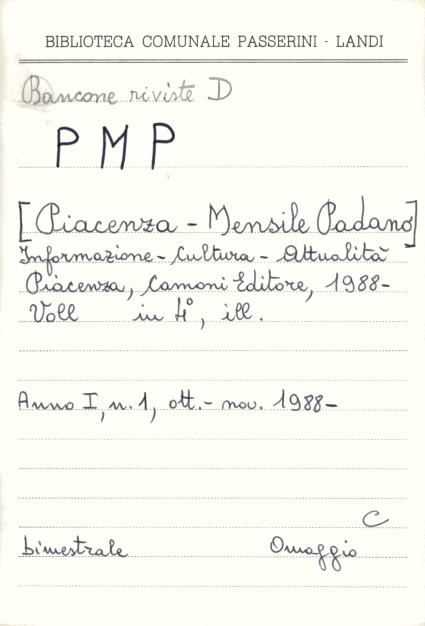 BIBLIOTECA COMUNALE PASSERINI - LANDI
Bancone riviste D
PMP
[Piacenza - Mensile Padano]
Informazione - Cultura - Attualità
Piacenza, Camoni Editore, 1988-
Voll in 4°, ill.
Anno I, n. 1, ott. - nov. 1988-
C
bimestrale Omaggio